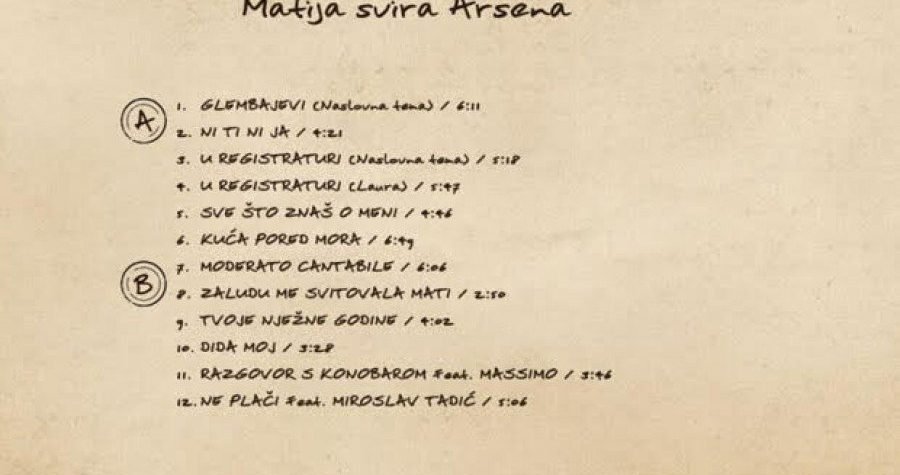 Matija svira Arsena
A
1. GLEMBAJEVI (Naslovna tema) / 6:11
2. NI TI NI JA / 4:21
3. U REGISTRATURI (Naslovna tema) / 5:18
4. U REGISTRATURI (Laura) / 5:47
5. SVE ŠTO ZNAŠ O MENI / 4:46
6. KUĆA PORED MORA / 6:49
B
7. MODERATO CANTABILE / 6:06
8. ZALUDU ME SVITOVALA MATI / 2:50
9. TVOJE NJEŽNE GODINE / 4:02
10. DIDA MOJ / 3:28
11. RAZGOVOR S KONOBAROM feat. MASSIMO / 3:46
12. NE PLAČI feat. MIROSLAV TADIĆ / 5:06